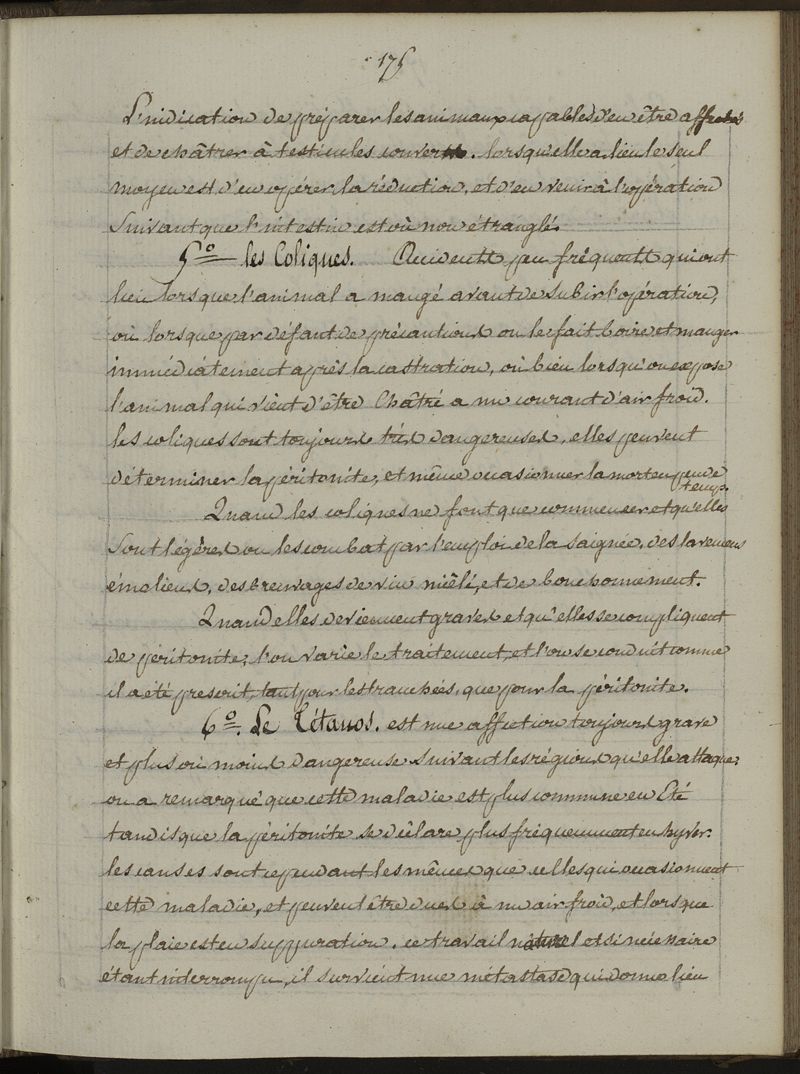 175
L'indication de préparer les animaux capables d'en être affectés
et de châtrer à testicules couverts. lorsqu'elle a lieu le seul
moyen est d'en opérer la réduction, et d'en venir à l'opération
Suivant que l'intestin est où non étranglé.
5º les Coliques. Accidentts peu fréquentts qui ont
lieu lorsque l'animal a mangé avant de subir l'opération,
où lorsque par défaut de précautions on le fait boire et manger
immédiâtement après la castration, où bien lorsqu'on expose
l'animal qui vient d'être Châtré a un courant d'air froid.
les coliques sont toujours très dangereuses, elles peuvent
déterminer la péritonite, et même occasionner la mort en peu de
temps.
Quand les coliques ne font que commencer et qu'elles
Sont légères on les combat par l'emploi de la saignée, des lavemens
émoliens, des breuvages de vin miêlé, et de bouchonnement.
Quand elles deviennent graves et qu'elles se compliquent
de péritonite; l'on varie le traitement, et l'on se conduit comme
il a été prescrit, tant pour les tranchées, que pour la péritonite.
6º. Le Tétanos. est une affection toujours grave
et plus où moins dangereuse suivant les régions qu'elle attaque;
on a remarqué que cette maladie est plus commune en Eté
tandis que la péritonite se déclare plus fréquemment en hyver.
les causes sont cependant les mêmes que celles qui occasionnent
cette maladie, et peuvent être dues à un air froid, et lorsque
la plaie est en suppuration. ce travail naturel et si nécessaire
étant interrompu, il survient une métastase qui donne lieu